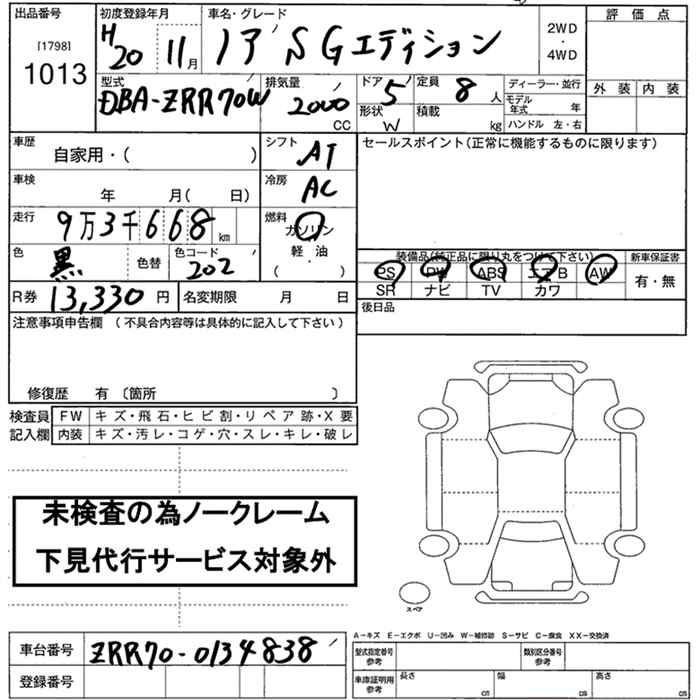 出品番号 初度登録年月 車名・グレード 評価点
[1798]
1013
H20 11月 ノア SGエディション 2WD・4WD
外装 内装
型式 排気量 ドア 定員 ディーラー・並行
DBA-ZRR70W 2000 CC 5 8人 モデル年式 年
形状 積載
W kg ハンドル 左・右
車歴 シフト セールスポイント(正常に機能するものに限ります)
自家用・( ) AT
車検 冷房
年 月( 日) AC
走行 燃料
9万3千668km ガソリン
軽・油
( )
色 色替 色コード 装備品(純正品に限り丸をつけて下さい) 新車保証書
黒 202 PS PW ABS エアB AW 有・無
SR ナビ TV カワ
R券 13,330円 名変期限 月 日 後日品
注意事項申告欄(不具合内容等は具体的に記入して下さい)
修復歴 有〔箇所 〕
検査員 FW キズ・飛石・ヒビ割・リペア跡・X要
記入欄 内装 キズ・汚レ・コゲ・穴・スレ・キレ・破レ
未検査の為ノークレーム
下見代行サービス対象外
スペア
A-キズ E-エクボ U-凹み W-補修跡 S-サビ C-腐食 XX-交換済
車台番号 ZRR70-0134838
型式指定番号 参考 類別区分番号 参考
登録番号
車庫証明用 参考 長さ cm 幅 cm 高さ cm